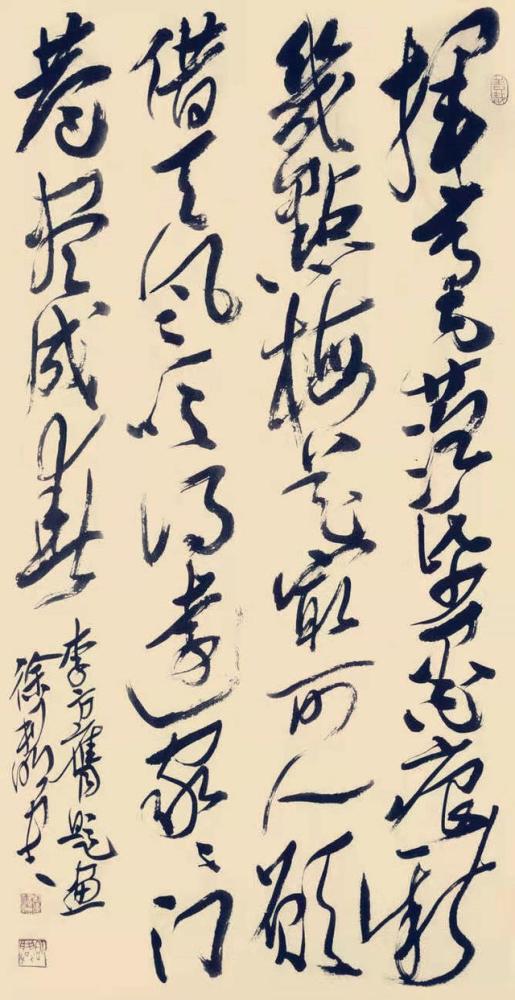 揮毫落紙墨痕新
幾點梅花最可人願
借天風吹得遠家〻門
巷盡成春
李方膺題畫
徐